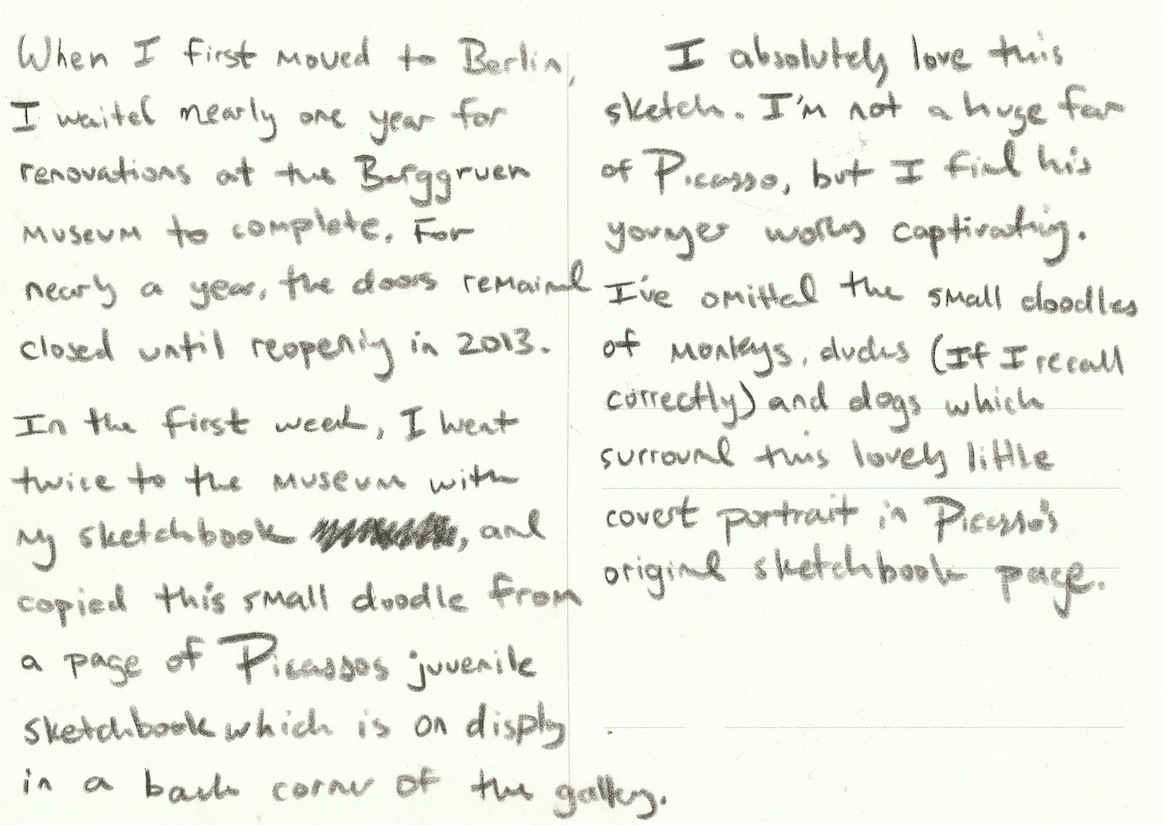 When I first moved to Berlin,
I waited nearly one year for
renovations at the Berggruen
museum to complete. For
nearly a year, the doors remained
closed until reopening in 2013.
In the first week, I went
twice to the museum with
my sketchbook, and
copied this small doodle from
a page of Picassos juvenile
sketchbook which is on display
in a back corner of the gallery.
I absolutely love this
sketch. I'm not a huge fan
of Picasso, but I find his
younger works captivating.
I've omitted the small doodles
of monkeys, dudes (If I recall
correctly) and dogs which
surround this lovely little
covert portrait in Picasso's
original sketchbook page.